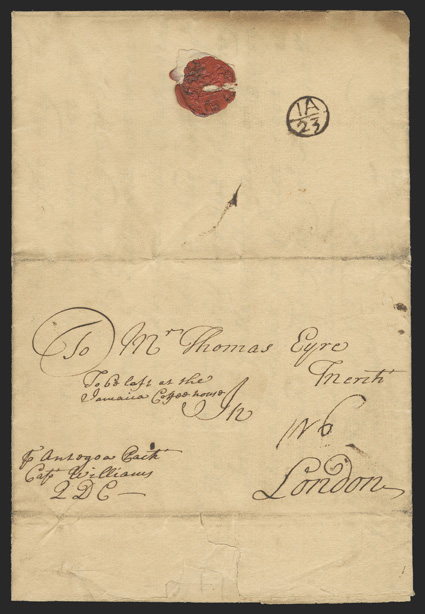 IA
23
To Mr Thomas Eyre
Mercht
To be left at the
Jamaica Coffee house
In
London
P Antogoa Packt
Capt Williams
QDC